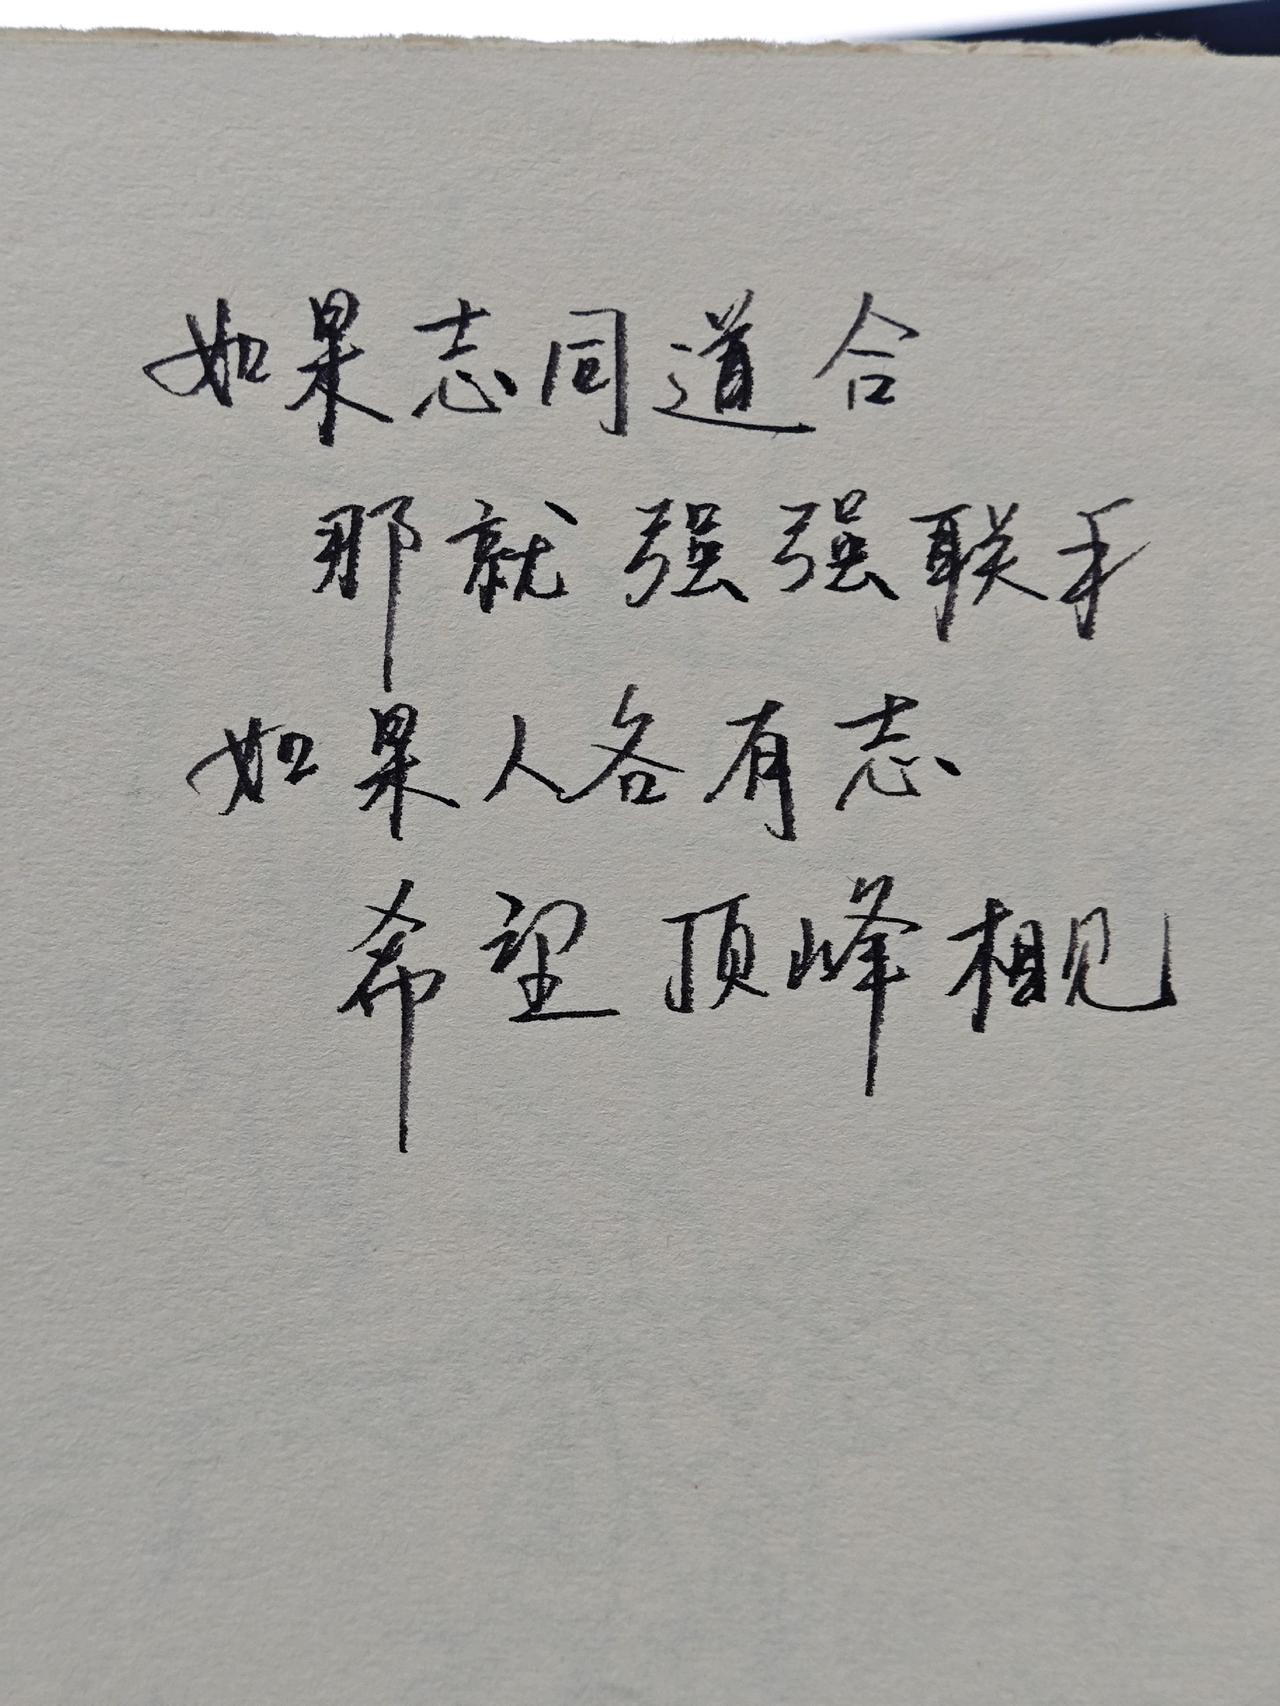 如果志同道合
那就强强联手
如果人各有志
希望顶峰相见